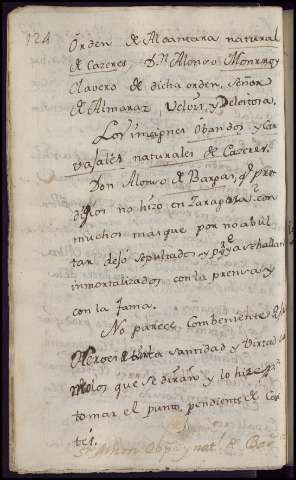 124
Orden de Alcantara natural
de Cazeres, Dn Alonso Monroy
Clavero de dicha orden, Señor
de Almaraz, Velvis, y Deleitosa,
Los insignes Obandos y Car
vajales naturales de Cazeres.
Don Alonso de Bargas, q pro
digios no hizo en Zaragoza? con
muchos mas que por no abul
tar dejó sepultados y pq se hallan
inmortalizados con la prensa, y
con la fama.
No parece Combeniente
Heroei santidad y Virtu
los que se dirán y lo hize
tomar el punto, pendiente de Cor
tés.